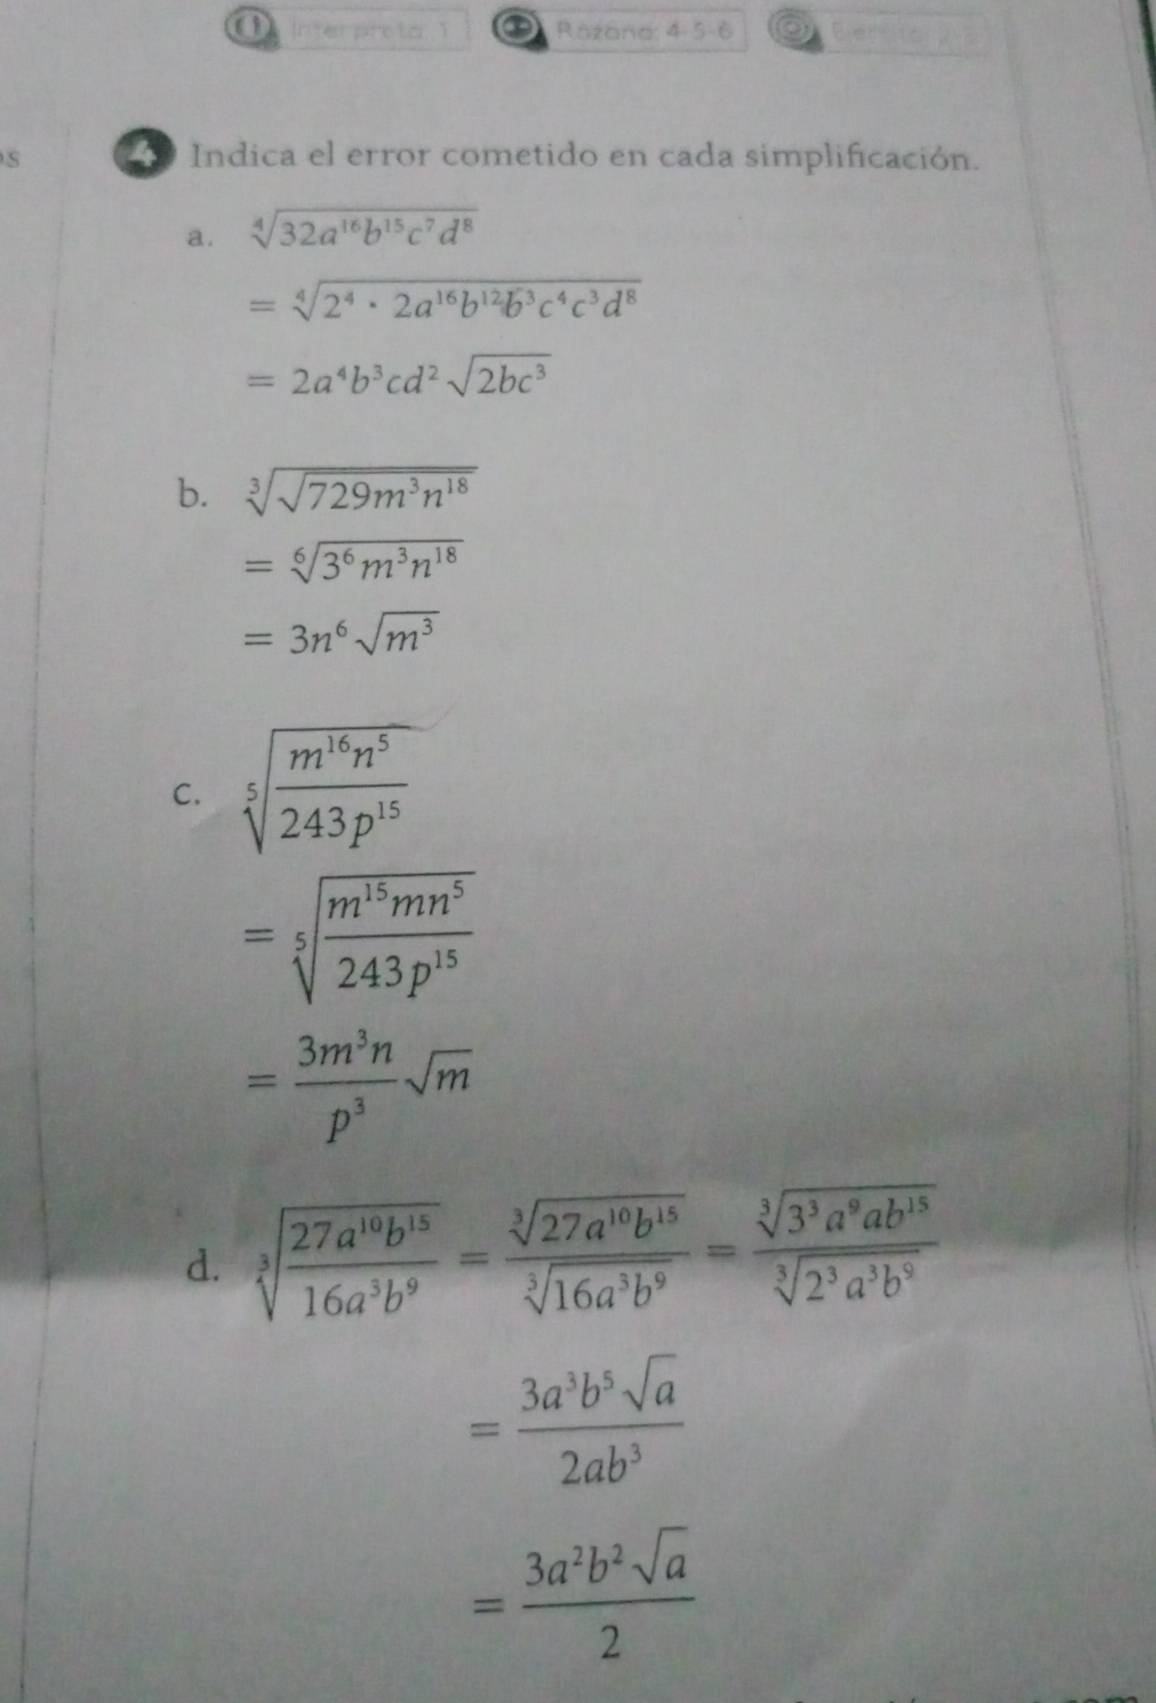 Interpreta: 1 Razona: 4-5-6
s
4 Indica el error cometido en cada simplificación.
a. ∜(32a¹⁶b¹⁵c⁷d⁸)
= ∜(2⁴ · 2a¹⁶b¹²b³c⁴c³d⁸)
= 2a⁴b³cd² √(2bc³)
b. ∛(√(729m³n¹⁸))
= ⁶√(3⁶m³n¹⁸)
= 3n⁶ √(m³)
c. ⁵√(m¹⁶n⁵ / 243p¹⁵)
= ⁵√(m¹⁵mn⁵ / 243p¹⁵)
= 3m³n / p³ √m
d. ∛(27a¹⁰b¹⁵ / 16a³b⁹) = ∛(27a¹⁰b¹⁵) / ∛(16a³b⁹) = ∛(3³a⁹ab¹⁵) / ∛(2³a³b⁹)
= 3a³b⁵√a / 2ab³
= 3a²b²√a / 2